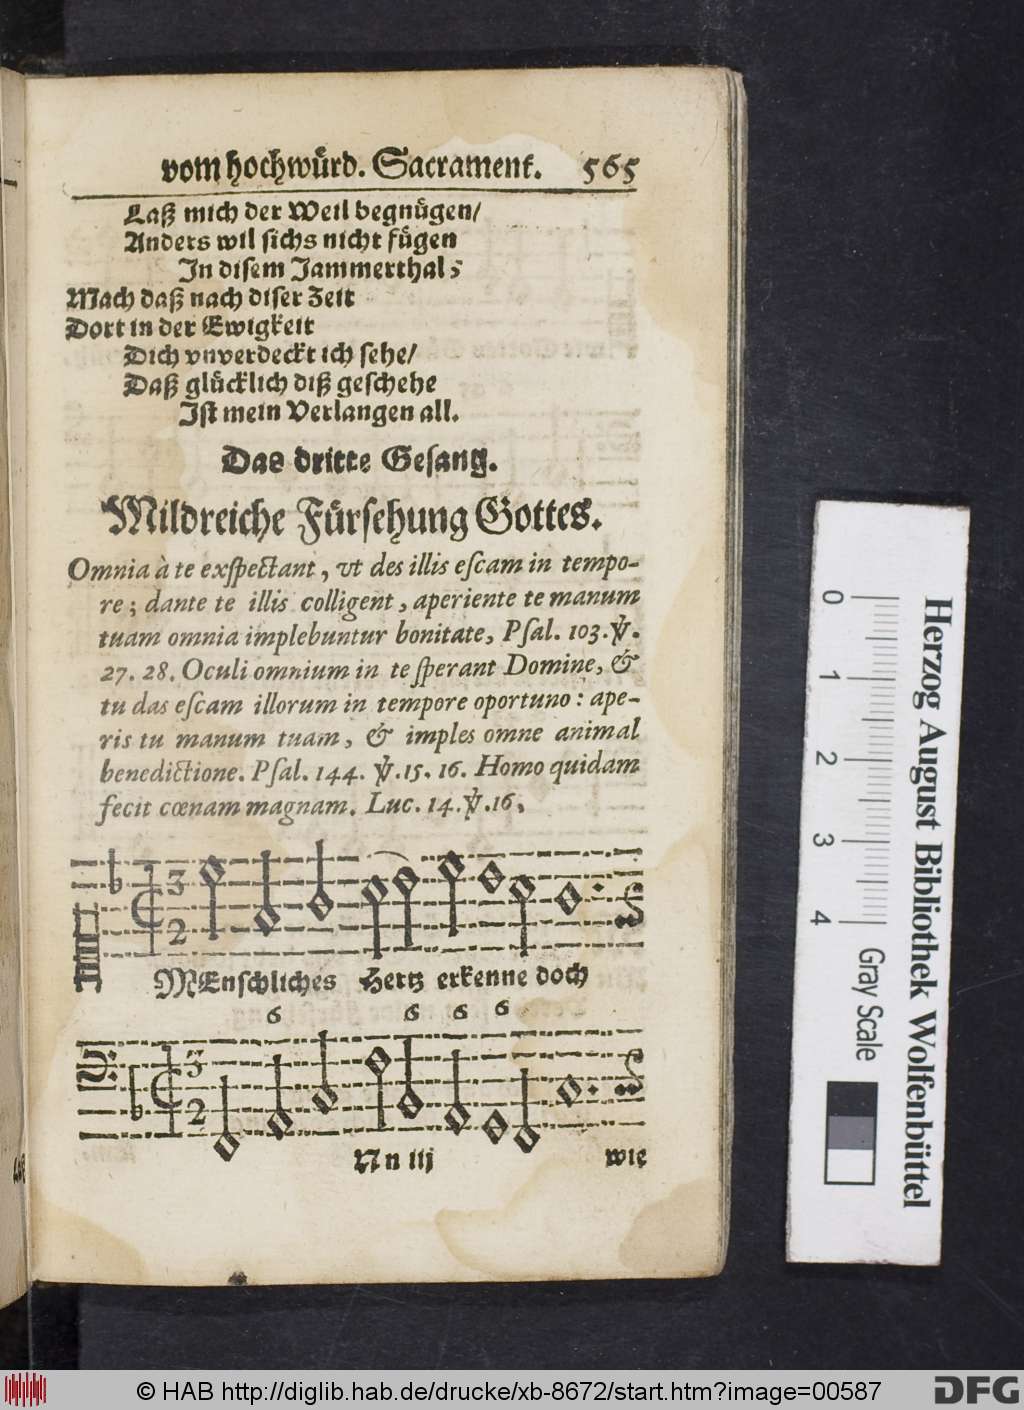 vom hochwürd. Sacrament. 565
Laß mich der Weil begnügen/
Anders wil sichs nicht fügen
In disem Jammerthal;
Mach daß nach diser Zeit
Dort in der Ewigkeit
Dich vnverdeckt ich sehe/
Daß glücklich diß geschehe
Ist mein Verlangen all.
Das dritte Gesang.
Mildreiche Fürsehung Gottes.
Omnia à te exspectant, vt des illis escam in tempo-
re; dante te illis colligent, aperiente te manum
tuam omnia implebuntur bonitate, Psal. 103. ℣.
27. 28. Oculi omnium in te sperant Domine, &
tu das escam illorum in tempore oportuno: ape-
ris tu manum tuam, & imples omne animal
benedictione. Psal. 144. ℣. 15. 16. Homo quidam
fecit cœnam magnam. Luc. 14. ℣. 16,
3
2
MEnschliches Hertz erkenne doch
6 6 6 6
3
2
Nn iij wie
Herzog August Bibliothek Wolfenbüttel
0 1 2 3 4 Gray Scale
© HAB http://diglib.hab.de/drucke/xb-8672/start.htm?image=00587
DFG